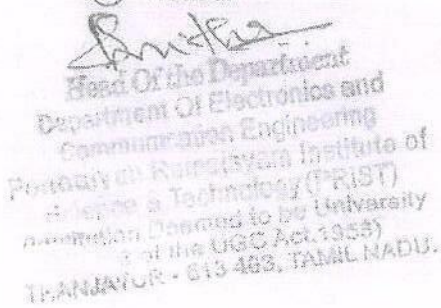 Head Of the Department
Department Of Electronics and
Communication Engineering
Institute of
Science & Technology (PRIST)
Deemed to be University
of the UGC Act.1956)
THANJAVUR - 613 403, TAMIL NADU.